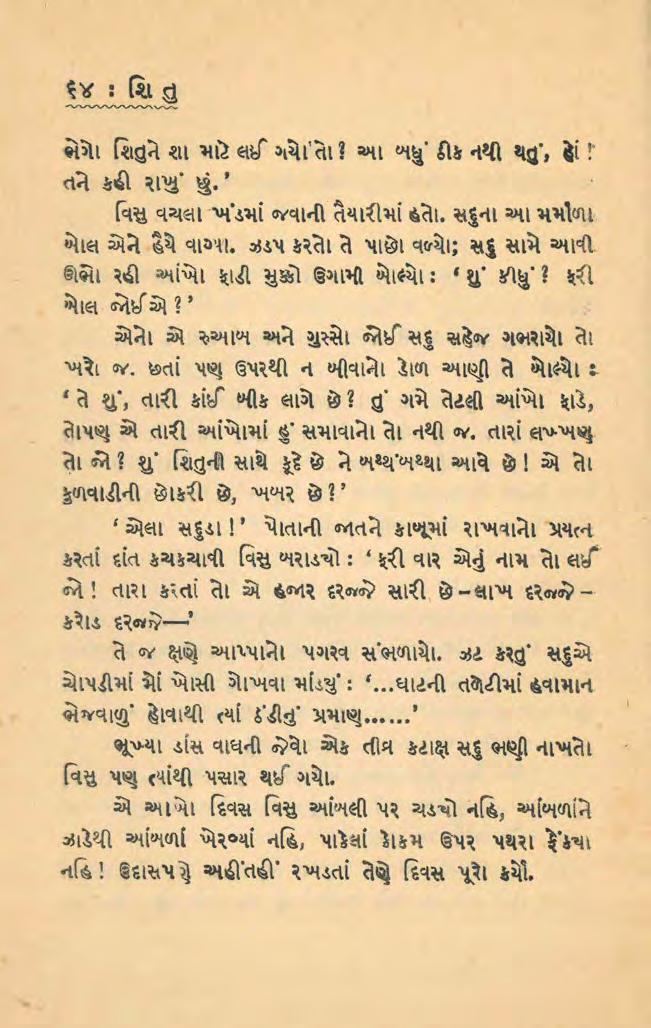 ૬૪ : શિ તુ
ભેગો શિતુને શા માટે લઈ ગયો'તો? આ બધું ઠીક નથી થતું, હોં !
તને કહી રાખું છું.'
વિસુ વચલા ખંડમાં જવાની તૈયારીમાં હતો. સદુના આ મર્માળા
બોલ એને હૈયે વાગ્યા. ઝડપ કરતો તે પાછો વળ્યો; સદુ સામે આવી
ઊભો રહી આંખો ફાડી મુક્કો ઉગામી બોલ્યો : ‘ શું કીધું ? ફરી
બોલ જોઈએ ?'
એનો એ રુઆબ અને ગુસ્સો જોઈ સદુ સહેજ ગભરાયો તો
ખરો જ. છતાં પણ ઉપરથી ન બીવાનો ડોળ આણી તે બોલ્યો :
‘ તે શું, તારી કાંઈ બીક લાગે છે ? તું ગમે તેટલી આંખો ફાડે,
તોપણ એ તારી આંખોમાં હું સમાવાનો તો નથી જ. તારાં લખ્ખણ
તો જો ? શું શિતુની સાથે કૂદે છે ને બથ્થંબથ્થા આવે છે ! એ તો
કુળવાડીની છોકરી છે, ખબર છે ?'
‘ એલા સદુડા !' પોતાની જાતને કાબૂમાં રાખવાનો પ્રયત્ન
કરતાં દાંત કચકચાવી વિસુ બરાડ્યો : ‘ ફરી વાર એનું નામ તો લઈ
જો ! તારા કરતાં તો એ હજાર દરજ્જે સારી છે – લાખ દરજ્જે –
કરોડ દરજ્જે—'
તે જ ક્ષણે આપ્પાનો પગરવ સંભળાયો. ઝટ કરતું સદુએ
ચોપડીમાં મોં ખોસી ગોખવા માંડ્યું : ‘...ઘાટની તળેટીમાં હવામાન
ભેજવાળું હોવાથી ત્યાં ઠંડીનું પ્રમાણ......'
ભૂખ્યા ડાંસ વાઘની જેવો એક તીવ્ર કટાક્ષ સદુ ભણી નાખતો
વિસુ પણ ત્યાંથી પસાર થઈ ગયો.
એ આખો દિવસ વિસુ આંબલી પર ચડ્યો નહિ, આંબળાંને
ઝાડેથી આંબળાં ખેરવ્યાં નહિ, પાકેલાં કોકમ ઉપર પથરા ફેંક્યા
નહિ ! ઉદાસપણે અહીંતહીં રખડતાં તેણે દિવસ પૂરો કર્યો.